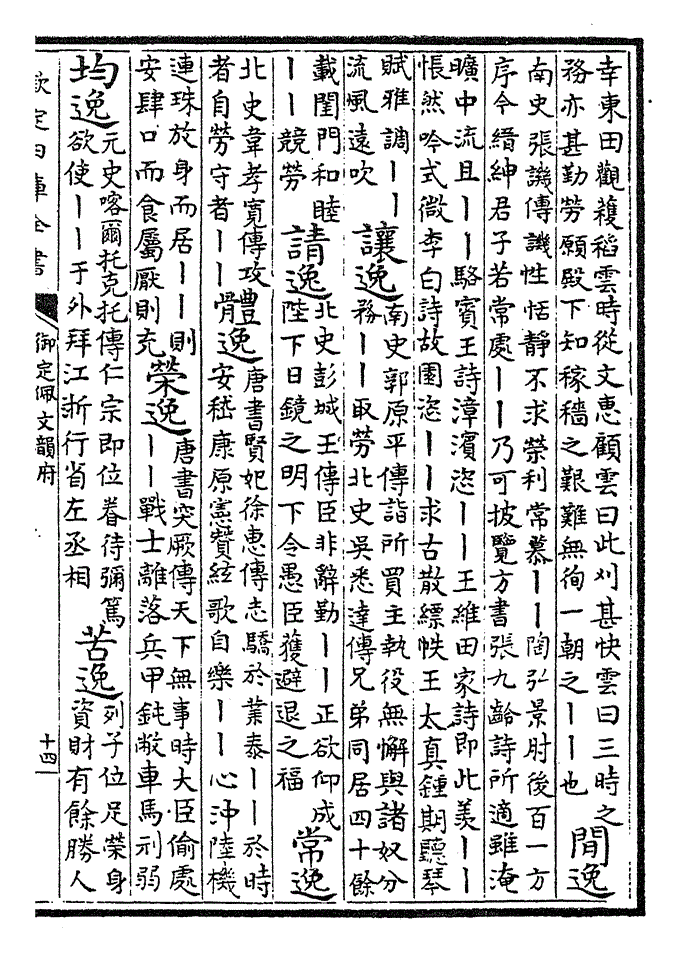 幸東田觀穫稻雲時從文惠顧雲曰此刈甚快雲曰三時之
務亦甚勤勞願殿下知稼穡之艱難無徇一朝之||也
閒逸
南史張譏傳譏性恬靜不求榮利常慕||陶弘景肘後百一方
序今縉紳君子若常處||乃可披覽方書張九齡詩所適雖淹
曠中流且||駱賓王詩漳濱恣||王維田家詩即此羡||
悵然吟式微李白詩故園恣||求古散縹帙王太真鍾期聽琴
賦雅調||
流風遠吹
讓逸
南史郭原平傳詣所買主執役無懈與諸奴分
務||取勞北史吳悉達傳兄弟同居四十餘
載閨門和睦
||競勞
請逸
北史彭城王傳臣非辭勤||正欲仰成
陛下日鏡之明下令愚臣獲避退之福
常逸
北史韋孝寬傳攻
者自勞守者||
體逸
唐書賢妃徐惠傳志驕於業泰||於時
安嵇康原憲贊絃歌自樂||心沖陸機
連珠放身而居||則
安肆口而食屬厭則充
榮逸
唐書突厥傳天下無事時大臣偷處
||戰士離落兵甲鈍敝車馬刓弱
均逸
元史喀爾托克托傳仁宗即位眷待彌篤
欲使||于外拜江浙行省左丞相
苦逸
列子位足榮身
資財有餘勝人
欽定四庫全書
御定佩文韻府
十四